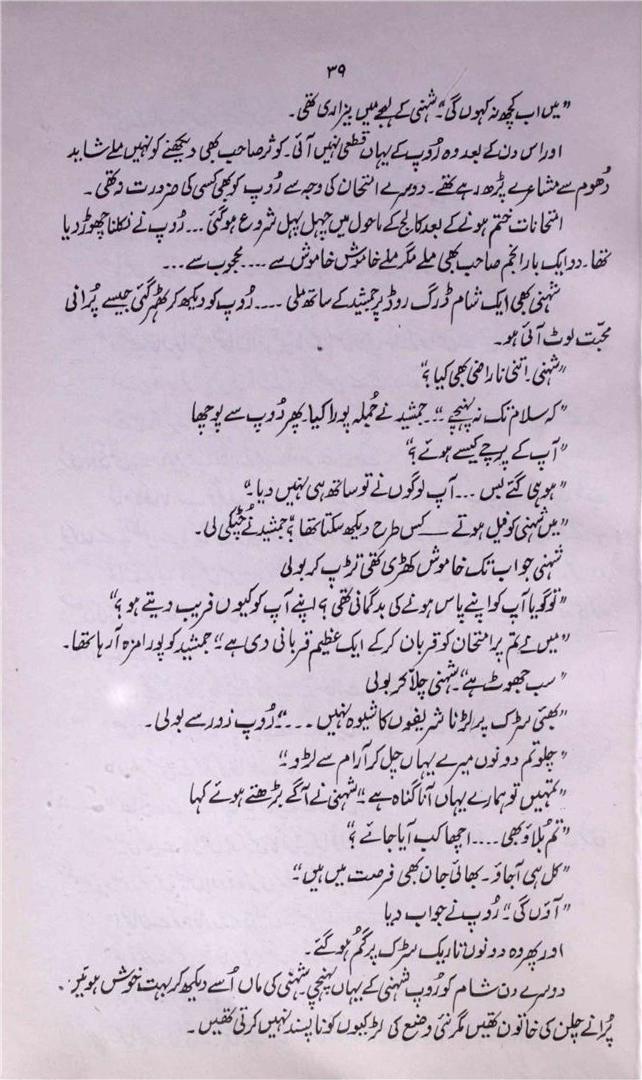 ۳۹
”میں اب کچھ نہ کہوں گی“۔ شہنی کے لہجے میں بیزاری تھی۔
اور اس دن کے بعد وہ رُوپ کے یہاں قطعی نہیں آئی۔ کوثر صاحب بھی دیکھنے کو نہیں ملے شاید
دُھوم سے مشاعرے پڑھ رہے تھے۔ دوسرے امتحان کی وجہ سے رُوپ کو بھی کسی کی ضرورت نہ تھی۔
امتحانات ختم ہونے کے بعد کالج کے ماحول میں چہل پہل شروع ہو گئی ... رُوپ نے نکلنا چھوڑ دیا
تھا۔ دو ایک بار انجم صاحب بھی ملے مگر ملے خاموش خاموش سے .... محجوب سے ...
شہنی بھی ایک شام ڈرگ روڈ پر جمشید کے ساتھ ملی .... رُوپ کو دیکھ کر ٹھہر گئی جیسے پُرانی
محبّت لوٹ آئی ہو۔
”شہنی۔ اتنی ناراضی بھی کیا؟“
”کہ سلام تک نہ پہنچے“... جمشید نے جُملہ پورا کیا۔ پھر رُوپ سے پوچھا
”آپ کے پرچے کیسے ہوئے؟“
”ہو ہی گئے بس ... آپ لوگوں نے تو ساتھ ہی نہیں دیا۔“
”میں شہنی کو فیل ہوتے — کس طرح دیکھ سکتا تھا؟“ جمشید نے چٹکی لی۔
شہنی جو اب تک خاموش کھڑی تھی تڑپ کر بولی
”تو گویا آپ کو اپنے پاس ہونے کی بدگمانی تھی؟ اپنے آپ کو کیوں فریب دیتے ہو؟“
”میں نے تم پر امتحان کو قربان کر کے ایک عظیم قربانی دی ہے“۔ جمشید کو پورا مزہ آ رہا تھا۔
”سب جھوٹ ہے“۔ شہنی چلّا کر بولی
”بھئی سڑک پر لڑنا شریفوں کا شیوہ نہیں ...“ رُوپ زور سے بولی۔
”چلو تم دونوں میرے یہاں چل کر آرام سے لڑو۔“
”تمہیں تو ہمارے یہاں آنا گناہ ہے“۔ شہنی نے آگے بڑھتے ہوئے کہا
”تم بُلاؤ بھی .... اچھا کب آیا جائے؟“
”کل ہی آ جاؤ۔ بھائی جان بھی فرصت میں ہیں۔“
”آؤں گی“۔ رُوپ نے جواب دیا
اور پھر وہ دونوں تاریک سڑک پر گُم ہو گئے۔
دوسرے دن شام کو رُوپ شہنی کے یہاں پہنچی۔ شہنی کی ماں اُسے دیکھ کر بہت خوش ہوئیں۔
پُرانے چلن کی خاتون تھیں مگر نئی وضع کی لڑکیوں کو ناپسند نہیں کرتی تھیں۔